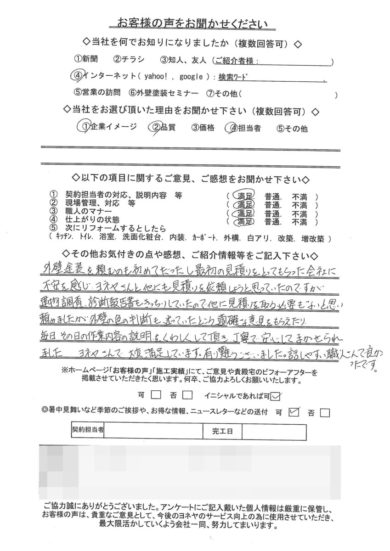 お客様の声をお聞かせください
◇当社を何でお知りになりましたか（複数回答可）◇
①新聞 ②チラシ ③知人、友人（ご紹介者様： ）
④インターネット（ yahoo! , google ）：検索ワード
⑤営業の訪問 ⑥外壁塗装セミナー ⑦その他( )
◇当社をお選び頂いた理由をお聞かせ下さい（複数回答可）◇
①企業イメージ ②品質 ③価格 ④担当者 ⑤その他
◇以下の項目に関するご意見、ご感想をお聞かせ下さい◇
① 契約担当者の対応、説明内容 等 （ 満足 普通、 不満 ）
② 現場管理、対応 等 （ 満足 普通、 不満 ）
③ 職人のマナー （ 満足 普通、 不満 ）
④ 仕上がりの状態 （ 満足 普通、 不満 ）
⑤ 次にリフォームするとしたら
（ キッチン、トイレ、浴室、洗面化粧台、内装、カーポート、外構、白アリ、改築、増改築 ）
◇その他お気付きの点や感想、ご紹介情報等をご記入下さい◇
外壁塗装を頼むのも初めてだったし最初の見積りをとってもらった会社に
不安を感じ ヨネヤさんと他にも見積りを依頼しようと思っていたのですが
事前調査、診断報告書もきっちりしていたので他に見積を取る必要もないと思い
頼みましたが外壁の色の判断も迷っていたところ適確な意見ももらえたり
毎日その日の作業内容の説明もくわしくして頂き、丁寧で安心してまかせられ
ました ヨネヤさんで大変満足しています。有難うございました。話しやすい職人さんで良かったです。
※ホームページ「お客様の声」「施工実績」にて、ご意見や貴殿宅のビフォーアフターを
掲載させていただきたく思います。何卒、ご協力よろしくお願いいたします。
可 □ 否 □ イニシャルであれば可 ☑
◎暑中見舞いなど季節のご挨拶や、お得な情報、ニュースレターなどの送付 可 ☑ 否 □
契約担当者 完工日
ご協力誠にありがとうございました。アンケートにご記入戴いた個人情報は厳重に保管し、
お客様の声は、貴重なご意見として、今後のヨネヤのサービス向上の為に使用させていただき、
最大限活かしていくよう会社一同、努力してまいります。